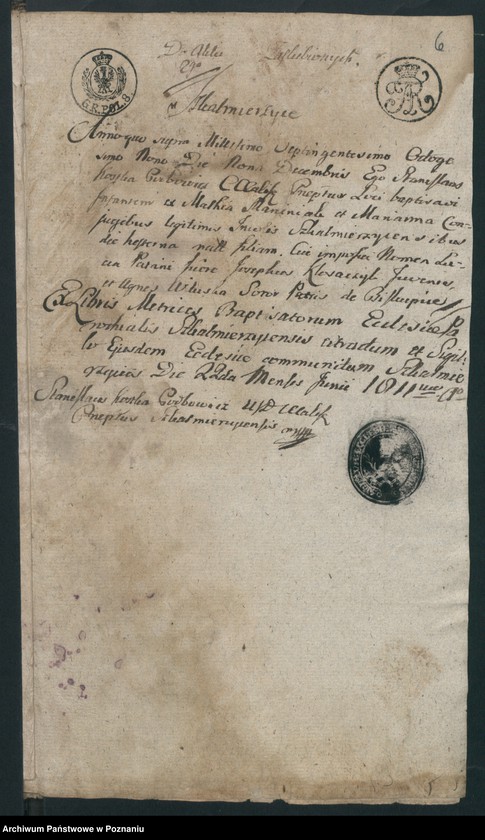 6
Do Aktu Zaślubionych.
G.R.POL.8.
Skalmierzyce
Anno quo supra Millesimo Septingentesimo Octoge
simo Nono Die Nona Decembris Ego Stanislaus
Kostka Præpositus Loci baptisavi
Infantem ex Mathia et Marianna Con
jugibus legitimis Incolis Skalmierzycensibus
die hesterna natam filiam. Cui imposui Nomen Lu
cia Patrini fuere Josephus Juvenis,
et Agnes Soror Patris de Biskupice
Ex Libris Metrices Baptisatorum Ecclesiæ Pa
rochialis Skalmierzycensis extractum et Sigil
lo Ejusdem Ecclesiæ communitum Skalmie
rzycis Die 22da Mensis Junii 1811
Stanislaus Kostka
Præpositus Skalmierzycensis mpp
Archiwum Państwowe w Poznaniu